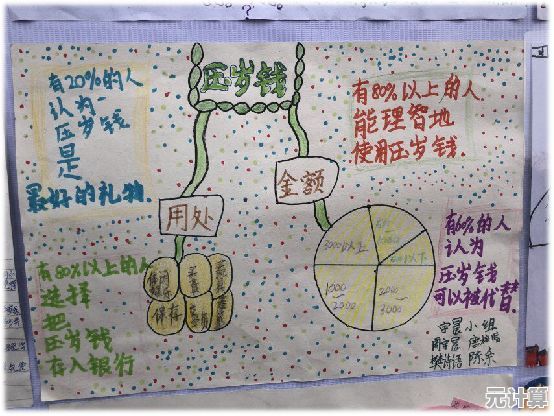 压岁钱
有20%的人
认为
压岁钱
是
最好的礼物
有80%以上的人
能理智地
使用压岁钱
用处
金额
有80%以上的人
选择
把
压岁钱
存入银行
保存
3000以上
1000
2000
2000
3000
有60%的人
认为
压岁钱
可以被代替
小组
陈
元计算